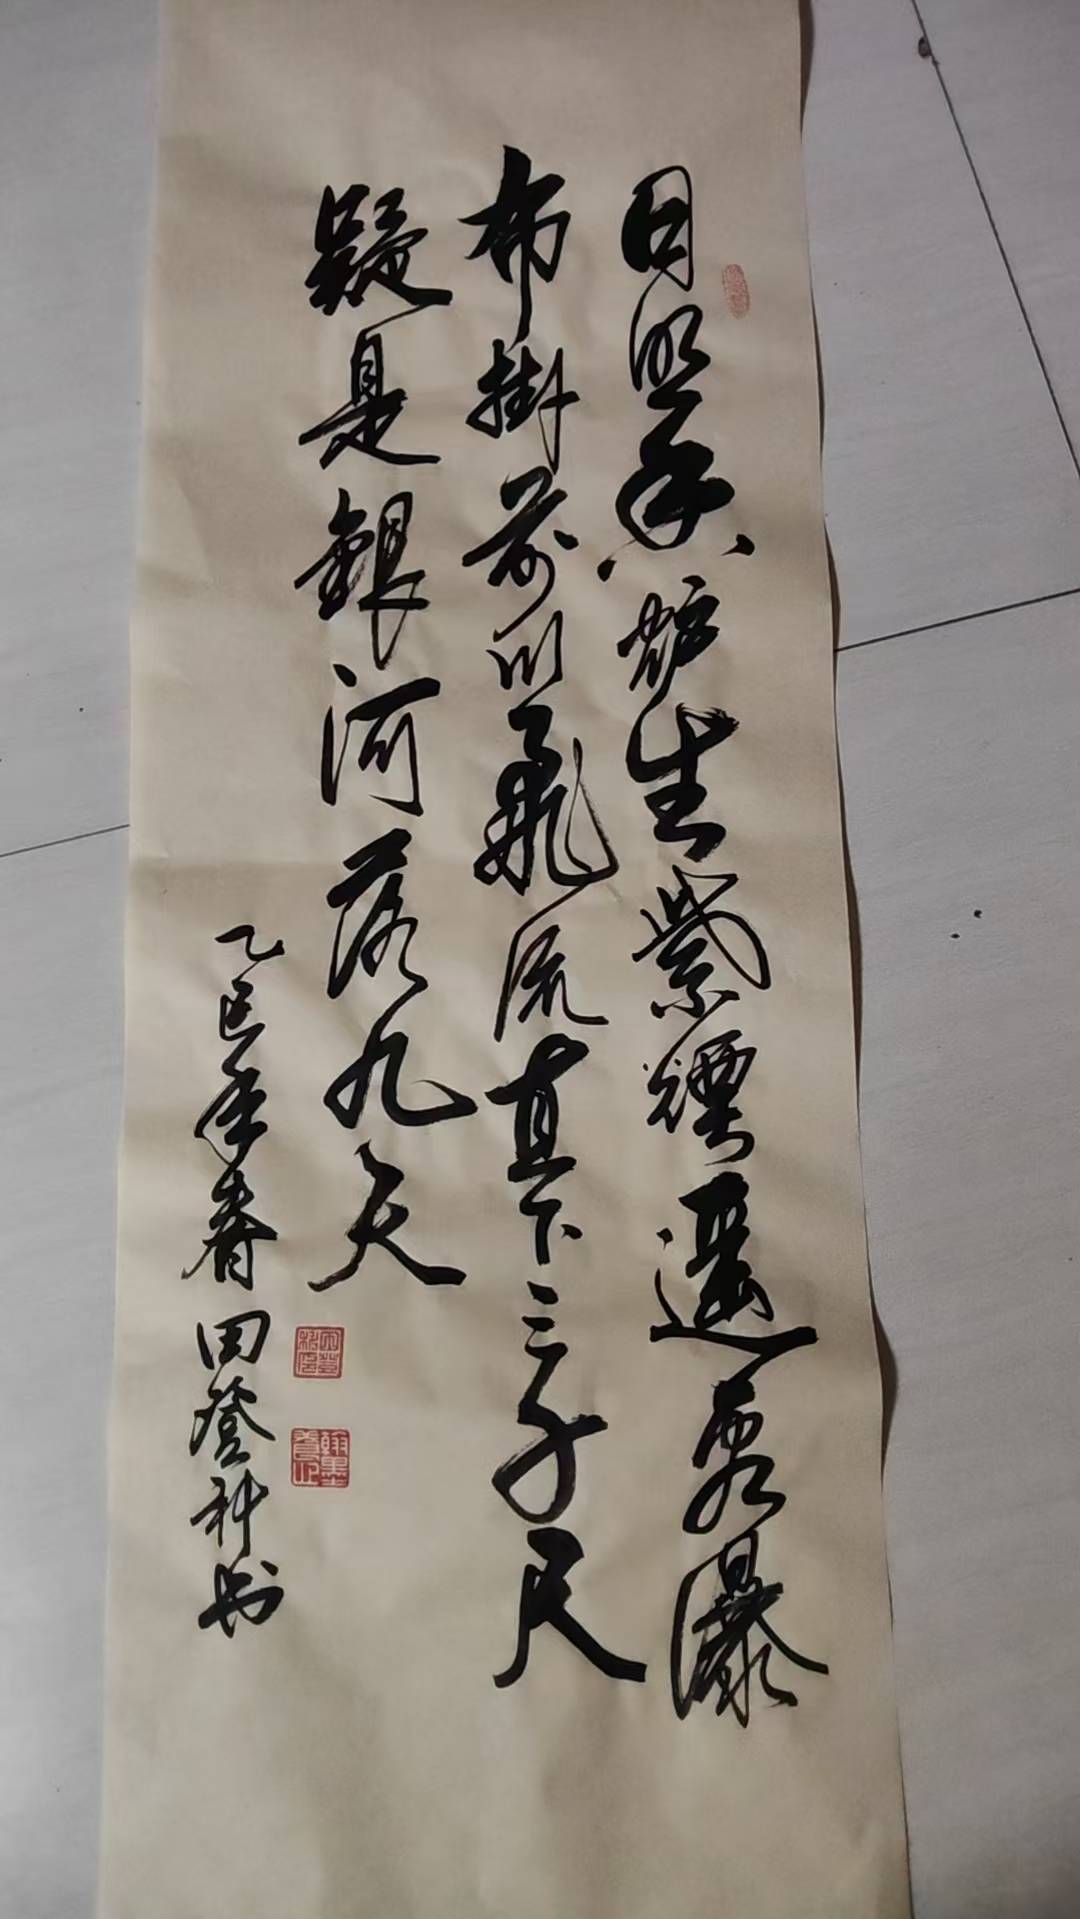 日照香炉生紫煙遥看瀑
布掛前川飛流直下三千尺
疑是銀河落九天
乙巳年春田登科书
翰墨